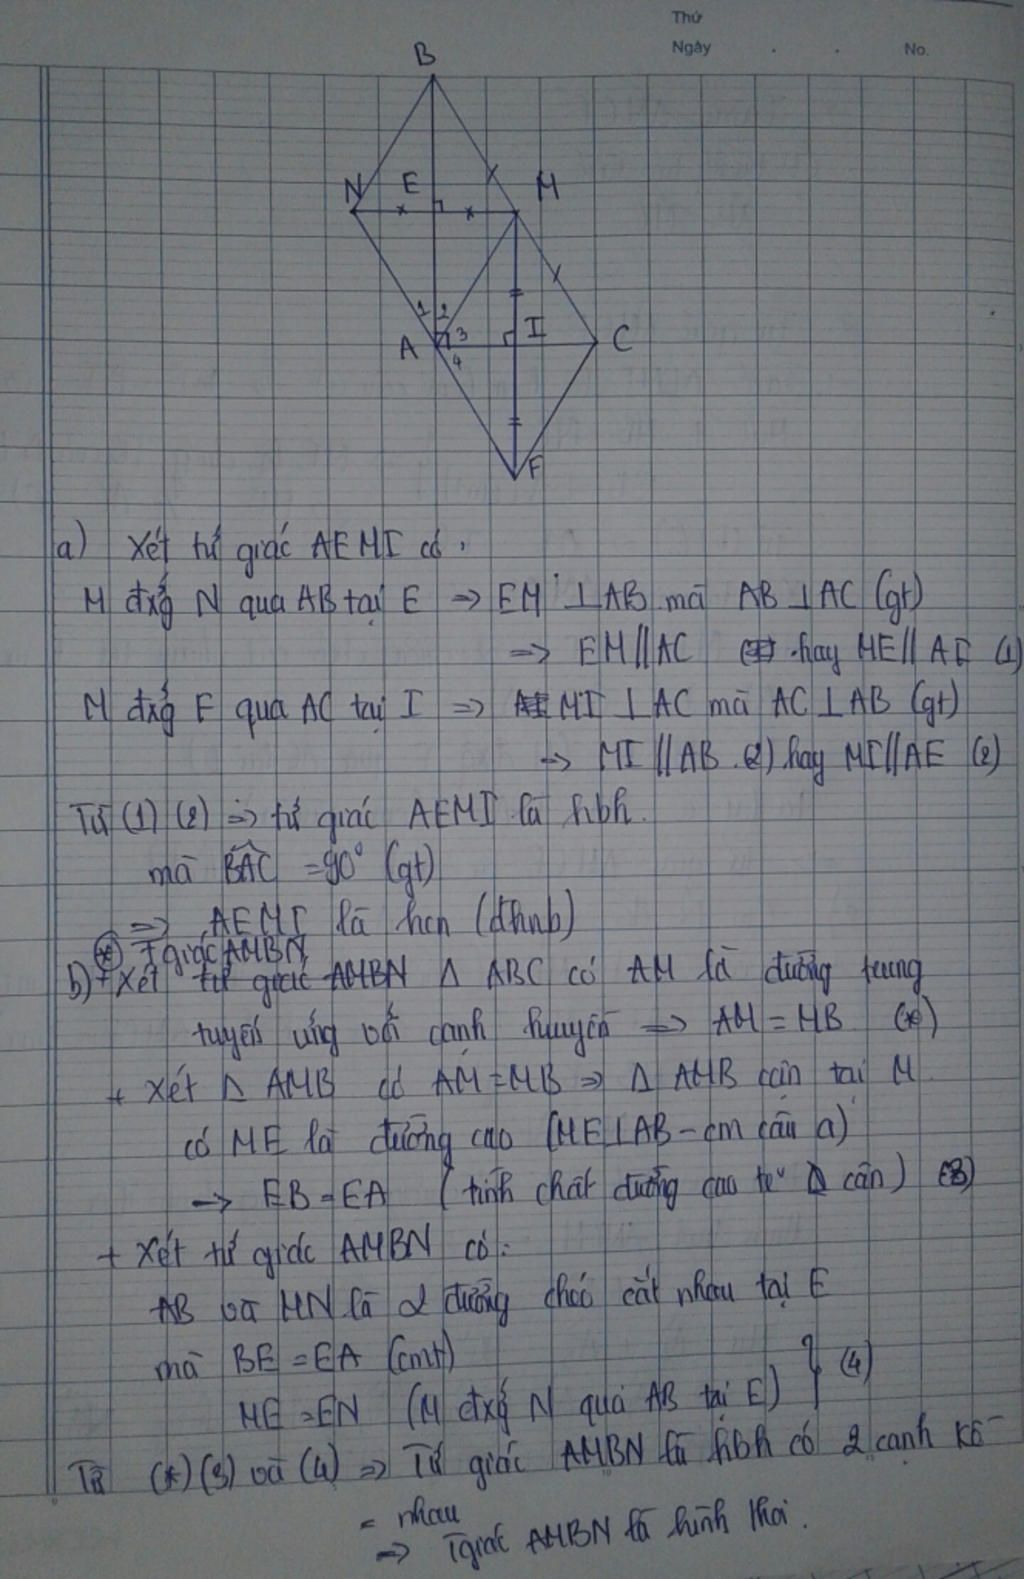 Thứ
Ngày . . No.
B
N E M
1 2
A 3 I C
4
F
a) Xét tứ giác AEMI có:
M đxg N qua AB tại E => EM ⊥ AB mà AB ⊥ AC (gt)
=> EM // AC hay ME // AI (1)
M đxg F qua AC tại I => MI ⊥ AC mà AC ⊥ AB (gt)
=> MI // AB (2) hay MI // AE (2)
Từ (1) (2) => tứ giác AEMI là hbh.
mà BAC = 90° (gt)
=> AEMI là hcn (dhnb)
(*) Tgiác AMBN
b) + Xét tứ giác AMBN Δ ABC có AM là đường trung
tuyến ứng với cạnh huyền => AM = MB (*)
+ Xét Δ AMB có AM = MB => Δ AMB cân tại M
có ME là đường cao (ME ⊥ AB - cm câu a)
-> EB = EA (tính chất đường cao Δ cân) (3)
+ Xét tứ giác AMBN có:
AB và MN là 2 đường chéo cắt nhau tại E
mà BE = EA (cmt)
ME = EN (M đxg N qua AB tại E) } (4)
Từ (*) (3) và (4) => Tứ giác AMBN là hbh có 2 cạnh kề
= nhau
=> Tgiác AMBN là hình thoi.